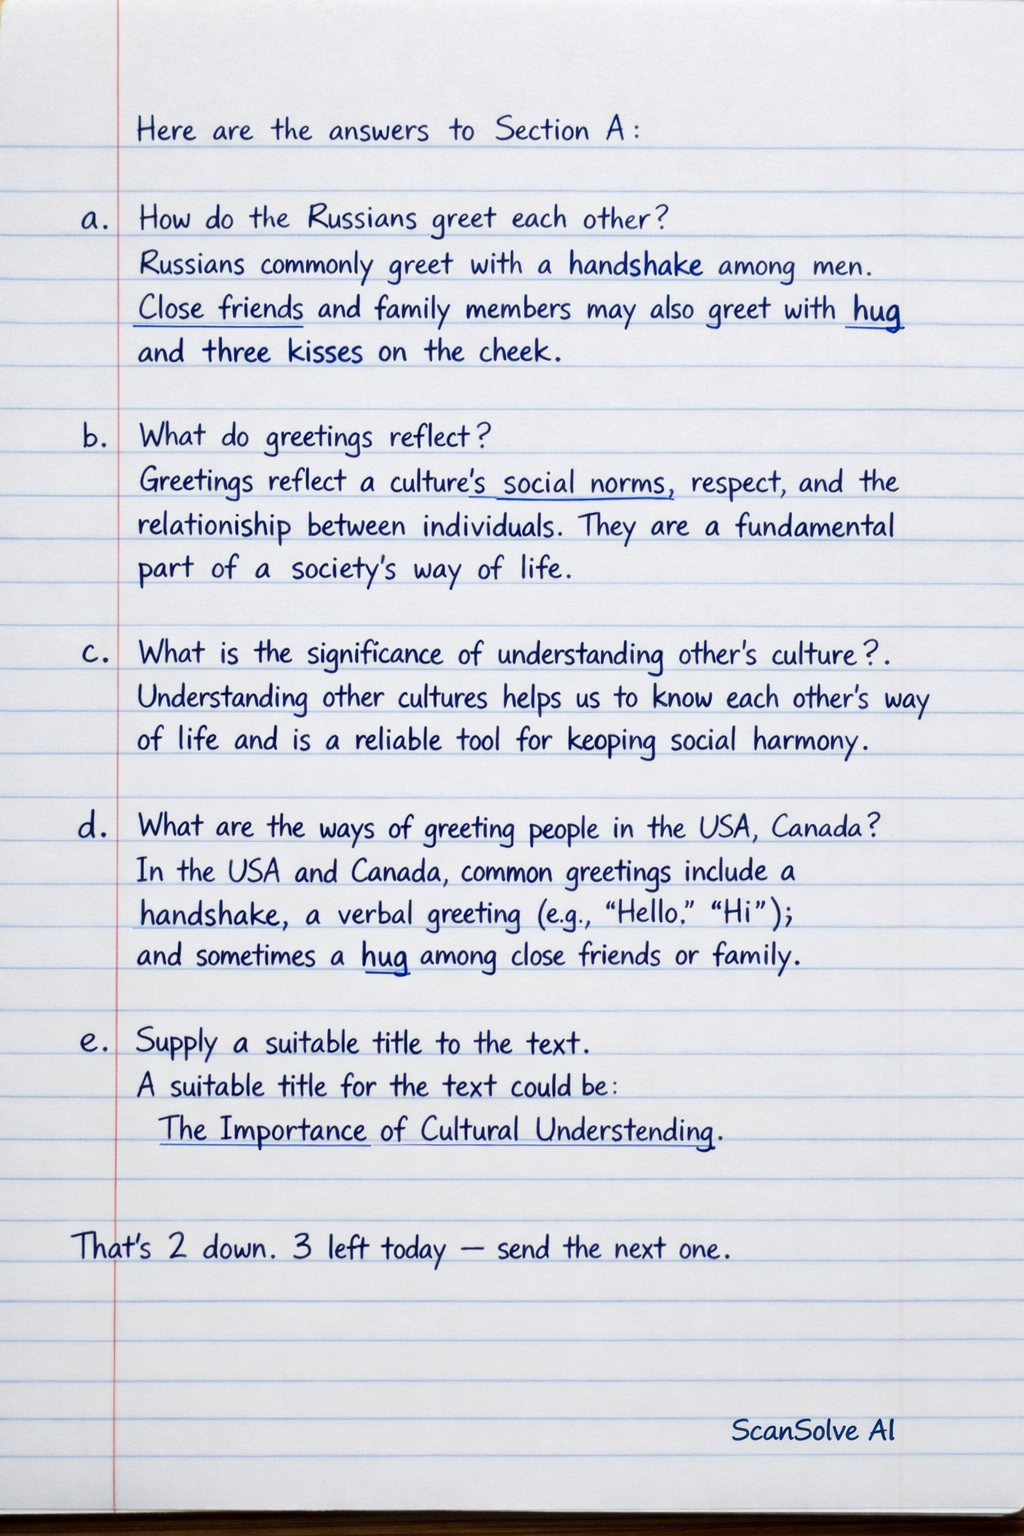 Here are the answers to Section A:
a. How do the Russians greet each other?
Russians commonly greet with a handshake among men.
Close friends and family members may also greet with hug
and three kisses on the cheek.
b. What do greetings reflect?
Greetings reflect a culture's social norms, respect, and the
relationiship between individuals. They are a fundamental
part of a society's way of life.
c. What is the significance of understanding other's culture?.
Understanding other cultures helps us to know each other's way
of life and is a reliable tool for keoping social harmony.
d. What are the ways of greeting people in the USA, Canada?
In the USA and Canada, common greetings include a
handshake, a verbal greeting (e.g., “Hello,” “Hi”);
and sometimes a hug among close friends or family.
e. Supply a suitable title to the text.
A suitable title for the text could be:
The Importance of Cultural Understending.
That's 2 down. 3 left today — send the next one.
ScanSolve AI